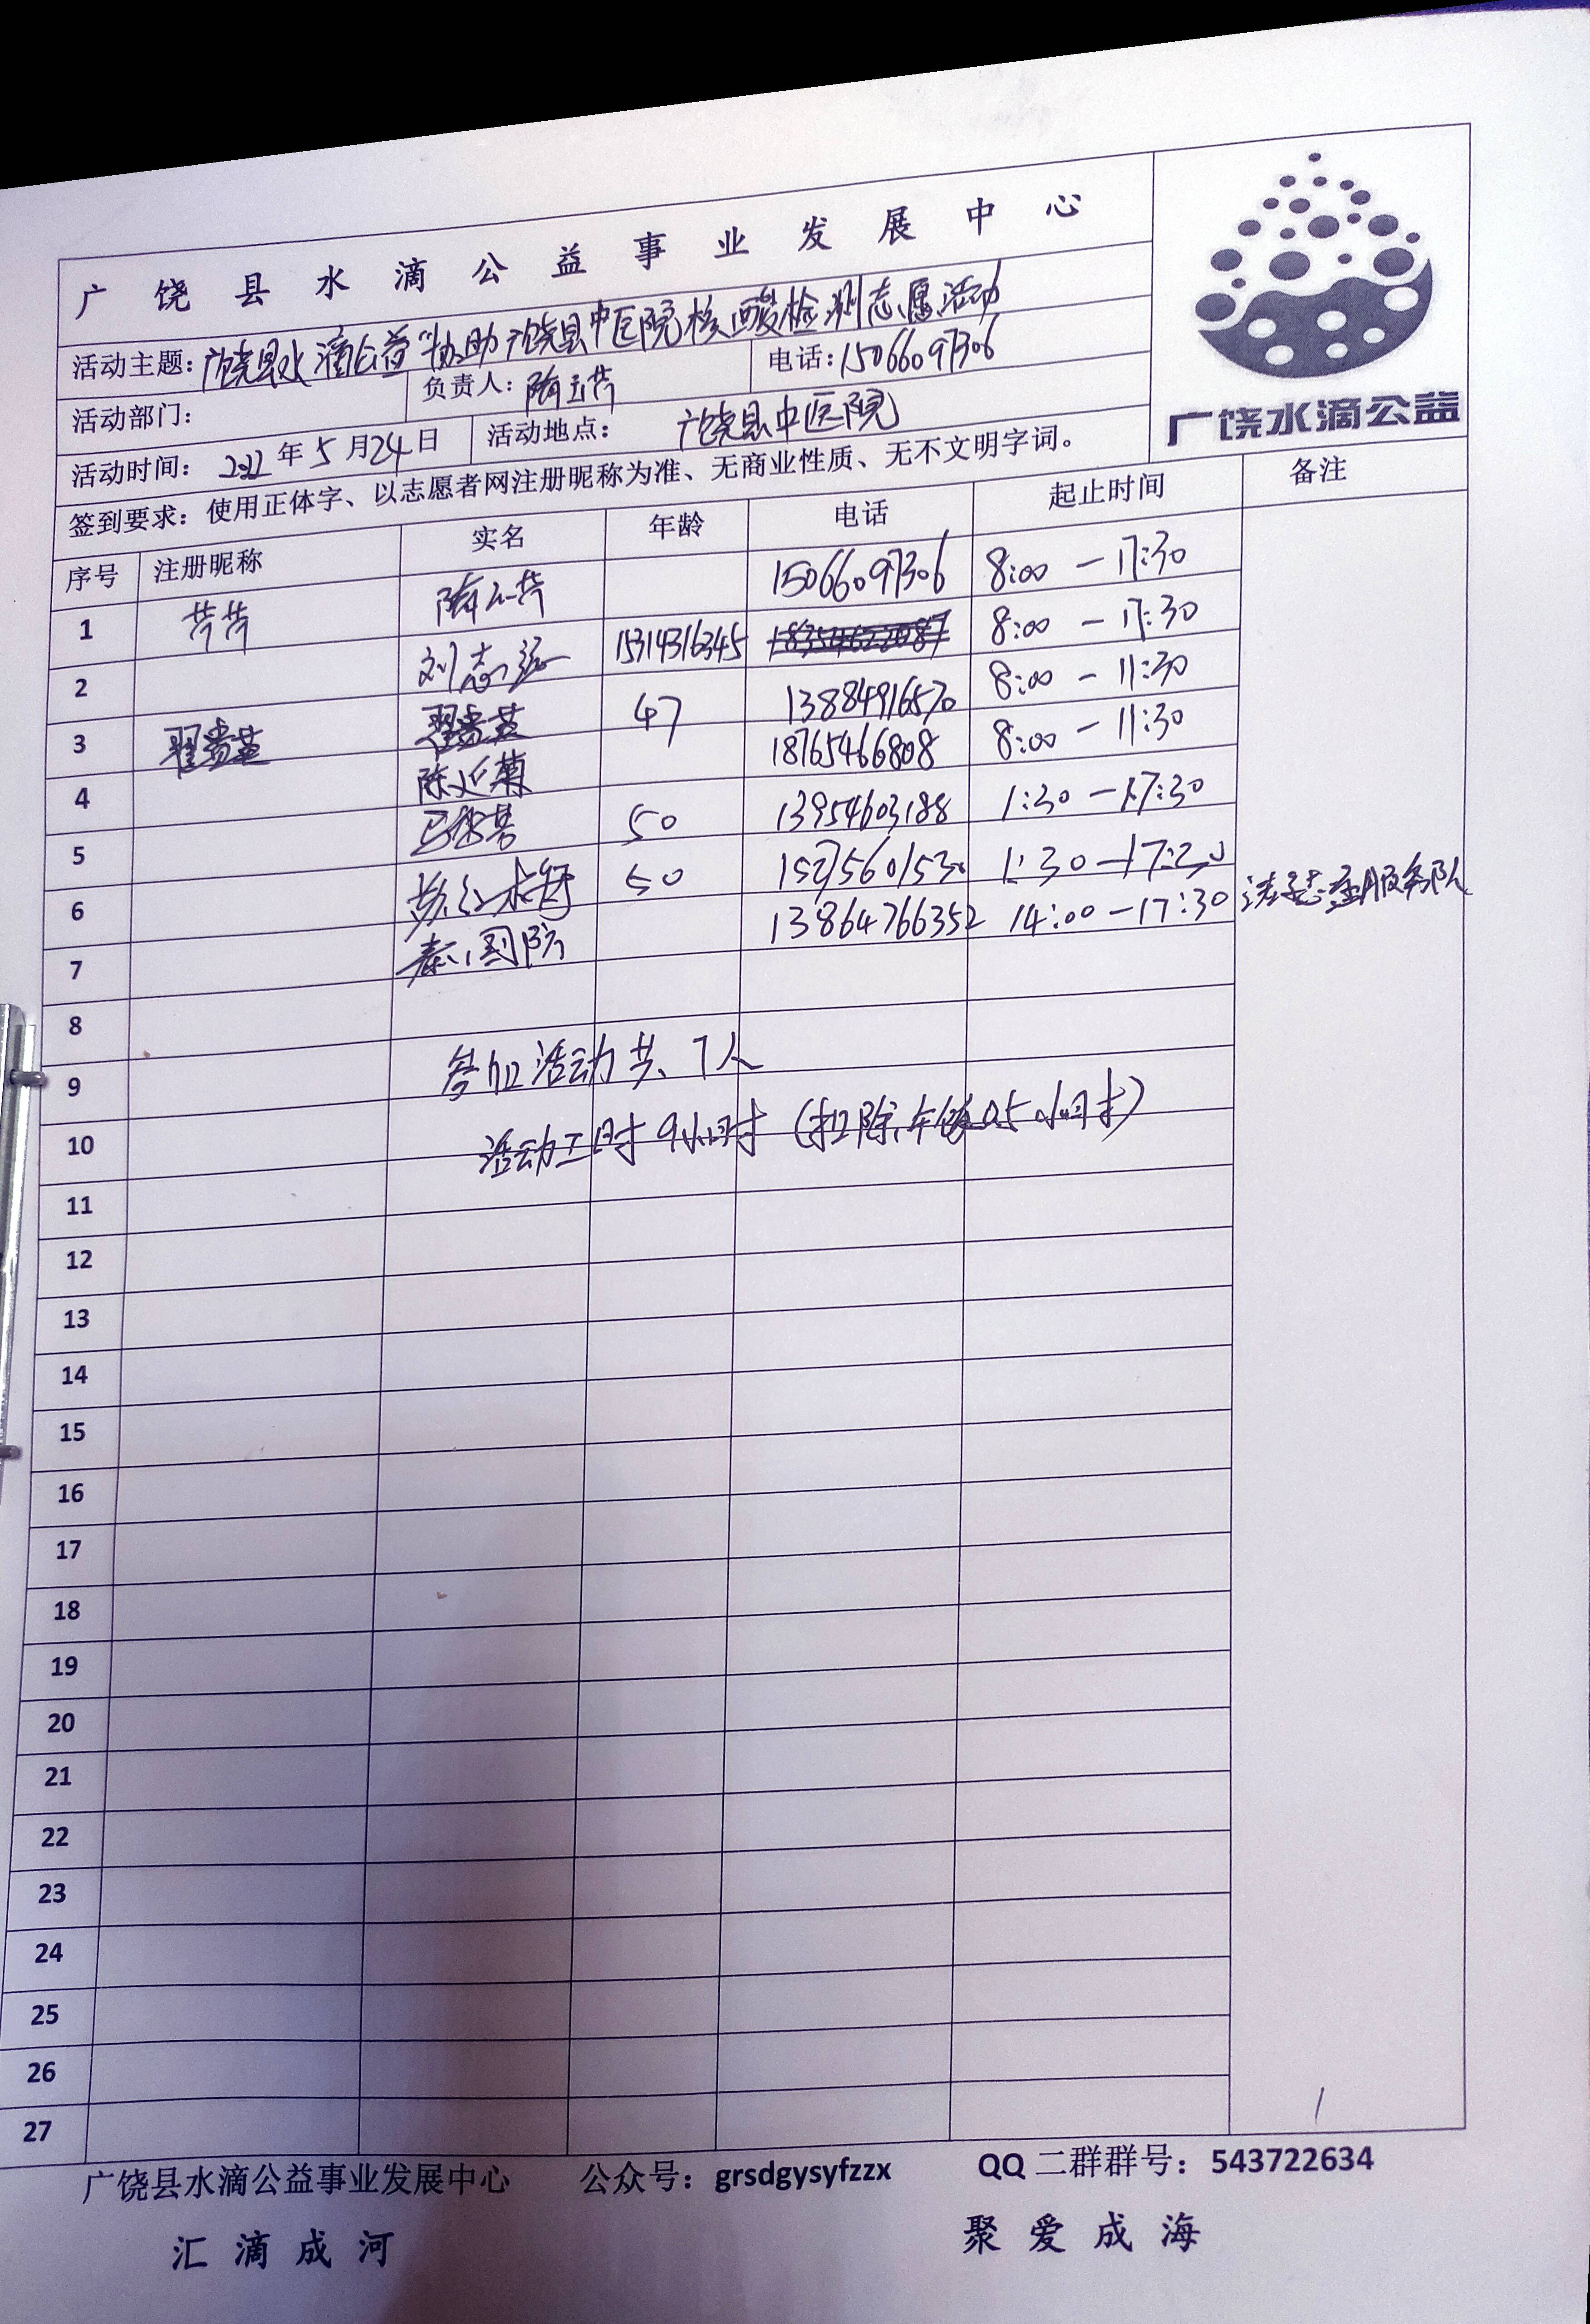 广饶县水滴公益事业发展中心
活动主题：广饶县水滴公益"协助广饶县中医院核酸检测志愿活动
活动部门： 负责人：隋玉芹 电话：15066097306
活动时间：2022年5月24日 活动地点：广饶县中医院
签到要求：使用正体字、以志愿者网注册昵称为准、无商业性质、无不文明字词。
广饶水滴公益
序号 注册昵称 实名 年龄 电话 起止时间 备注
1 芹芹 隋玉芹 15066097306 8:00 — 17:30
2 刘志远 15314316345 8:00 — 17:30
3 翟贵英 翟贵英 47 13884916570 8:00 — 11:30
4 陈延菊 18765466808 8:00 — 11:30
5 50 13954603188 1:30 — 17:30
6 50 15275601530 1:30 — 17:30
7 秦国防 13864766352 14:00 — 17:30 志愿服务队
8
9 参加活动共7人
10 活动工时9小时（扣除午饭0.5小时）
11
12
13
14
15
16
17
18
19
20
21
22
23
24
25
26
27
广饶县水滴公益事业发展中心 公众号：grsdgysyfzzx QQ 二群群号：543722634
汇滴成河 聚爱成海